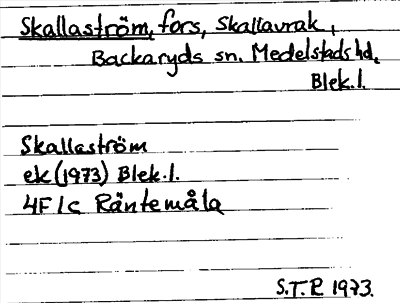 Skallaström, fors, Skallavrak,
Backaryds sn. Medelstads hd.
Blek.l.
Skallaström
ek (1973) Blek.l.
4F 1c Räntemåla
S.T.P. 1973.